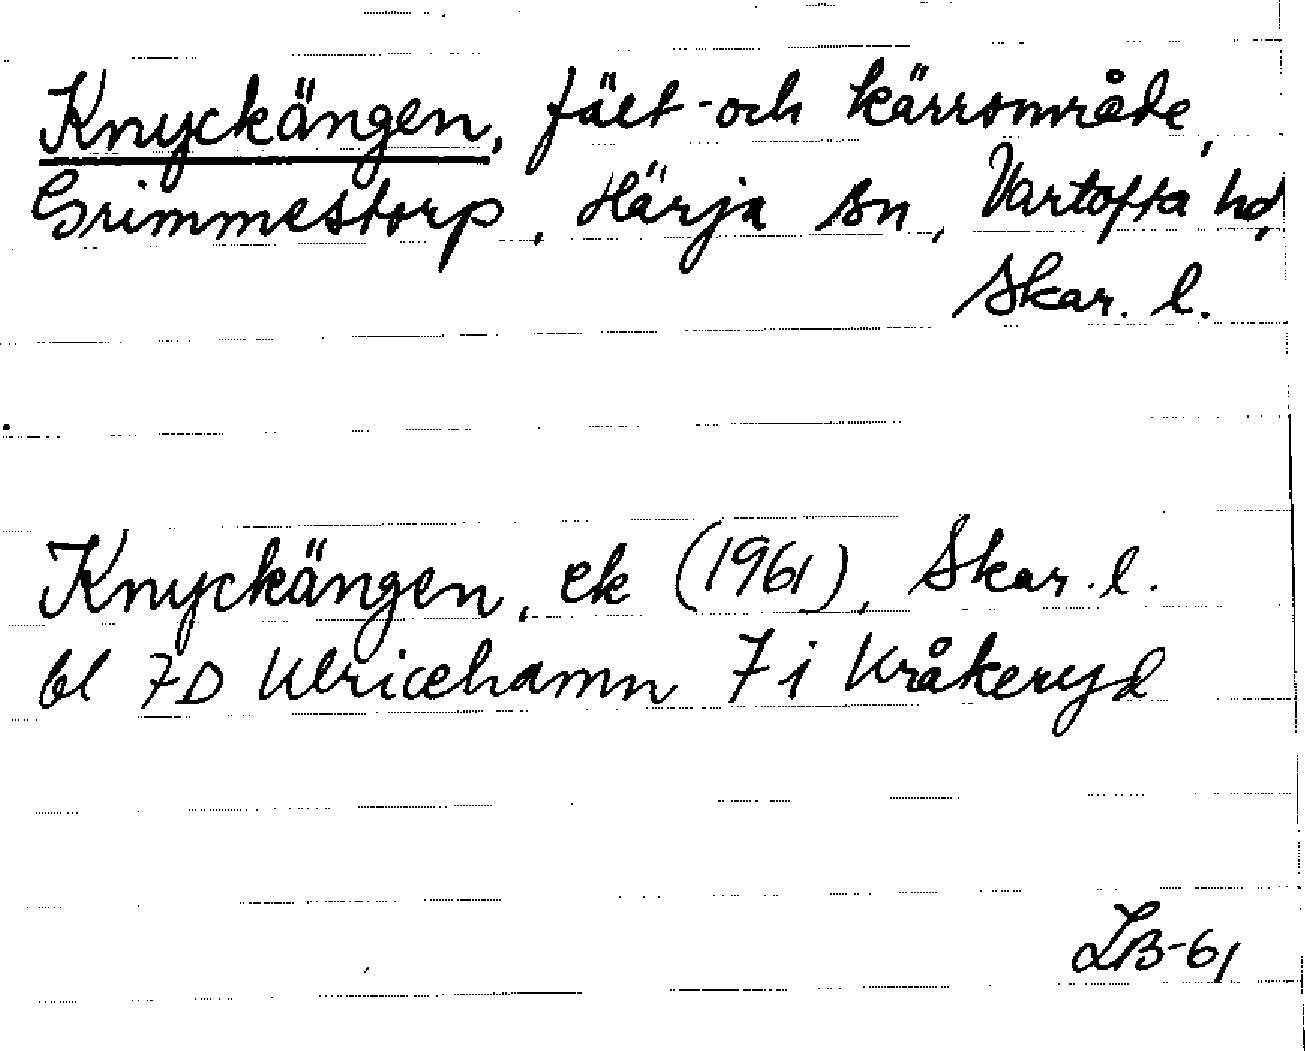 Knyckängen, fält- och kärrområde,
Grimmestorp, Härja sn, Vartofta hd,
Skar. l.
Knyckängen, ek (1961), Skar. l.
bl 7D Ulricehamn 7 i Kråkeryd
LB-61